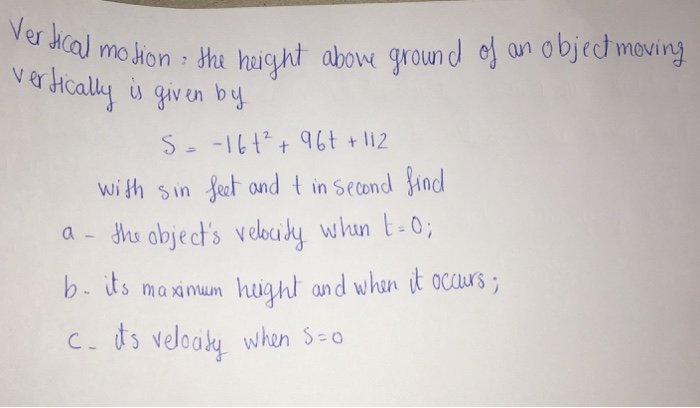 Vertical motion : the height above ground of an object moving
vertically is given by
S = -16t² + 96t + 112
with s in feet and t in second find
a - the object's velocity when t=0;
b- its maximum height and when it occurs;
c- its velocity when s=0